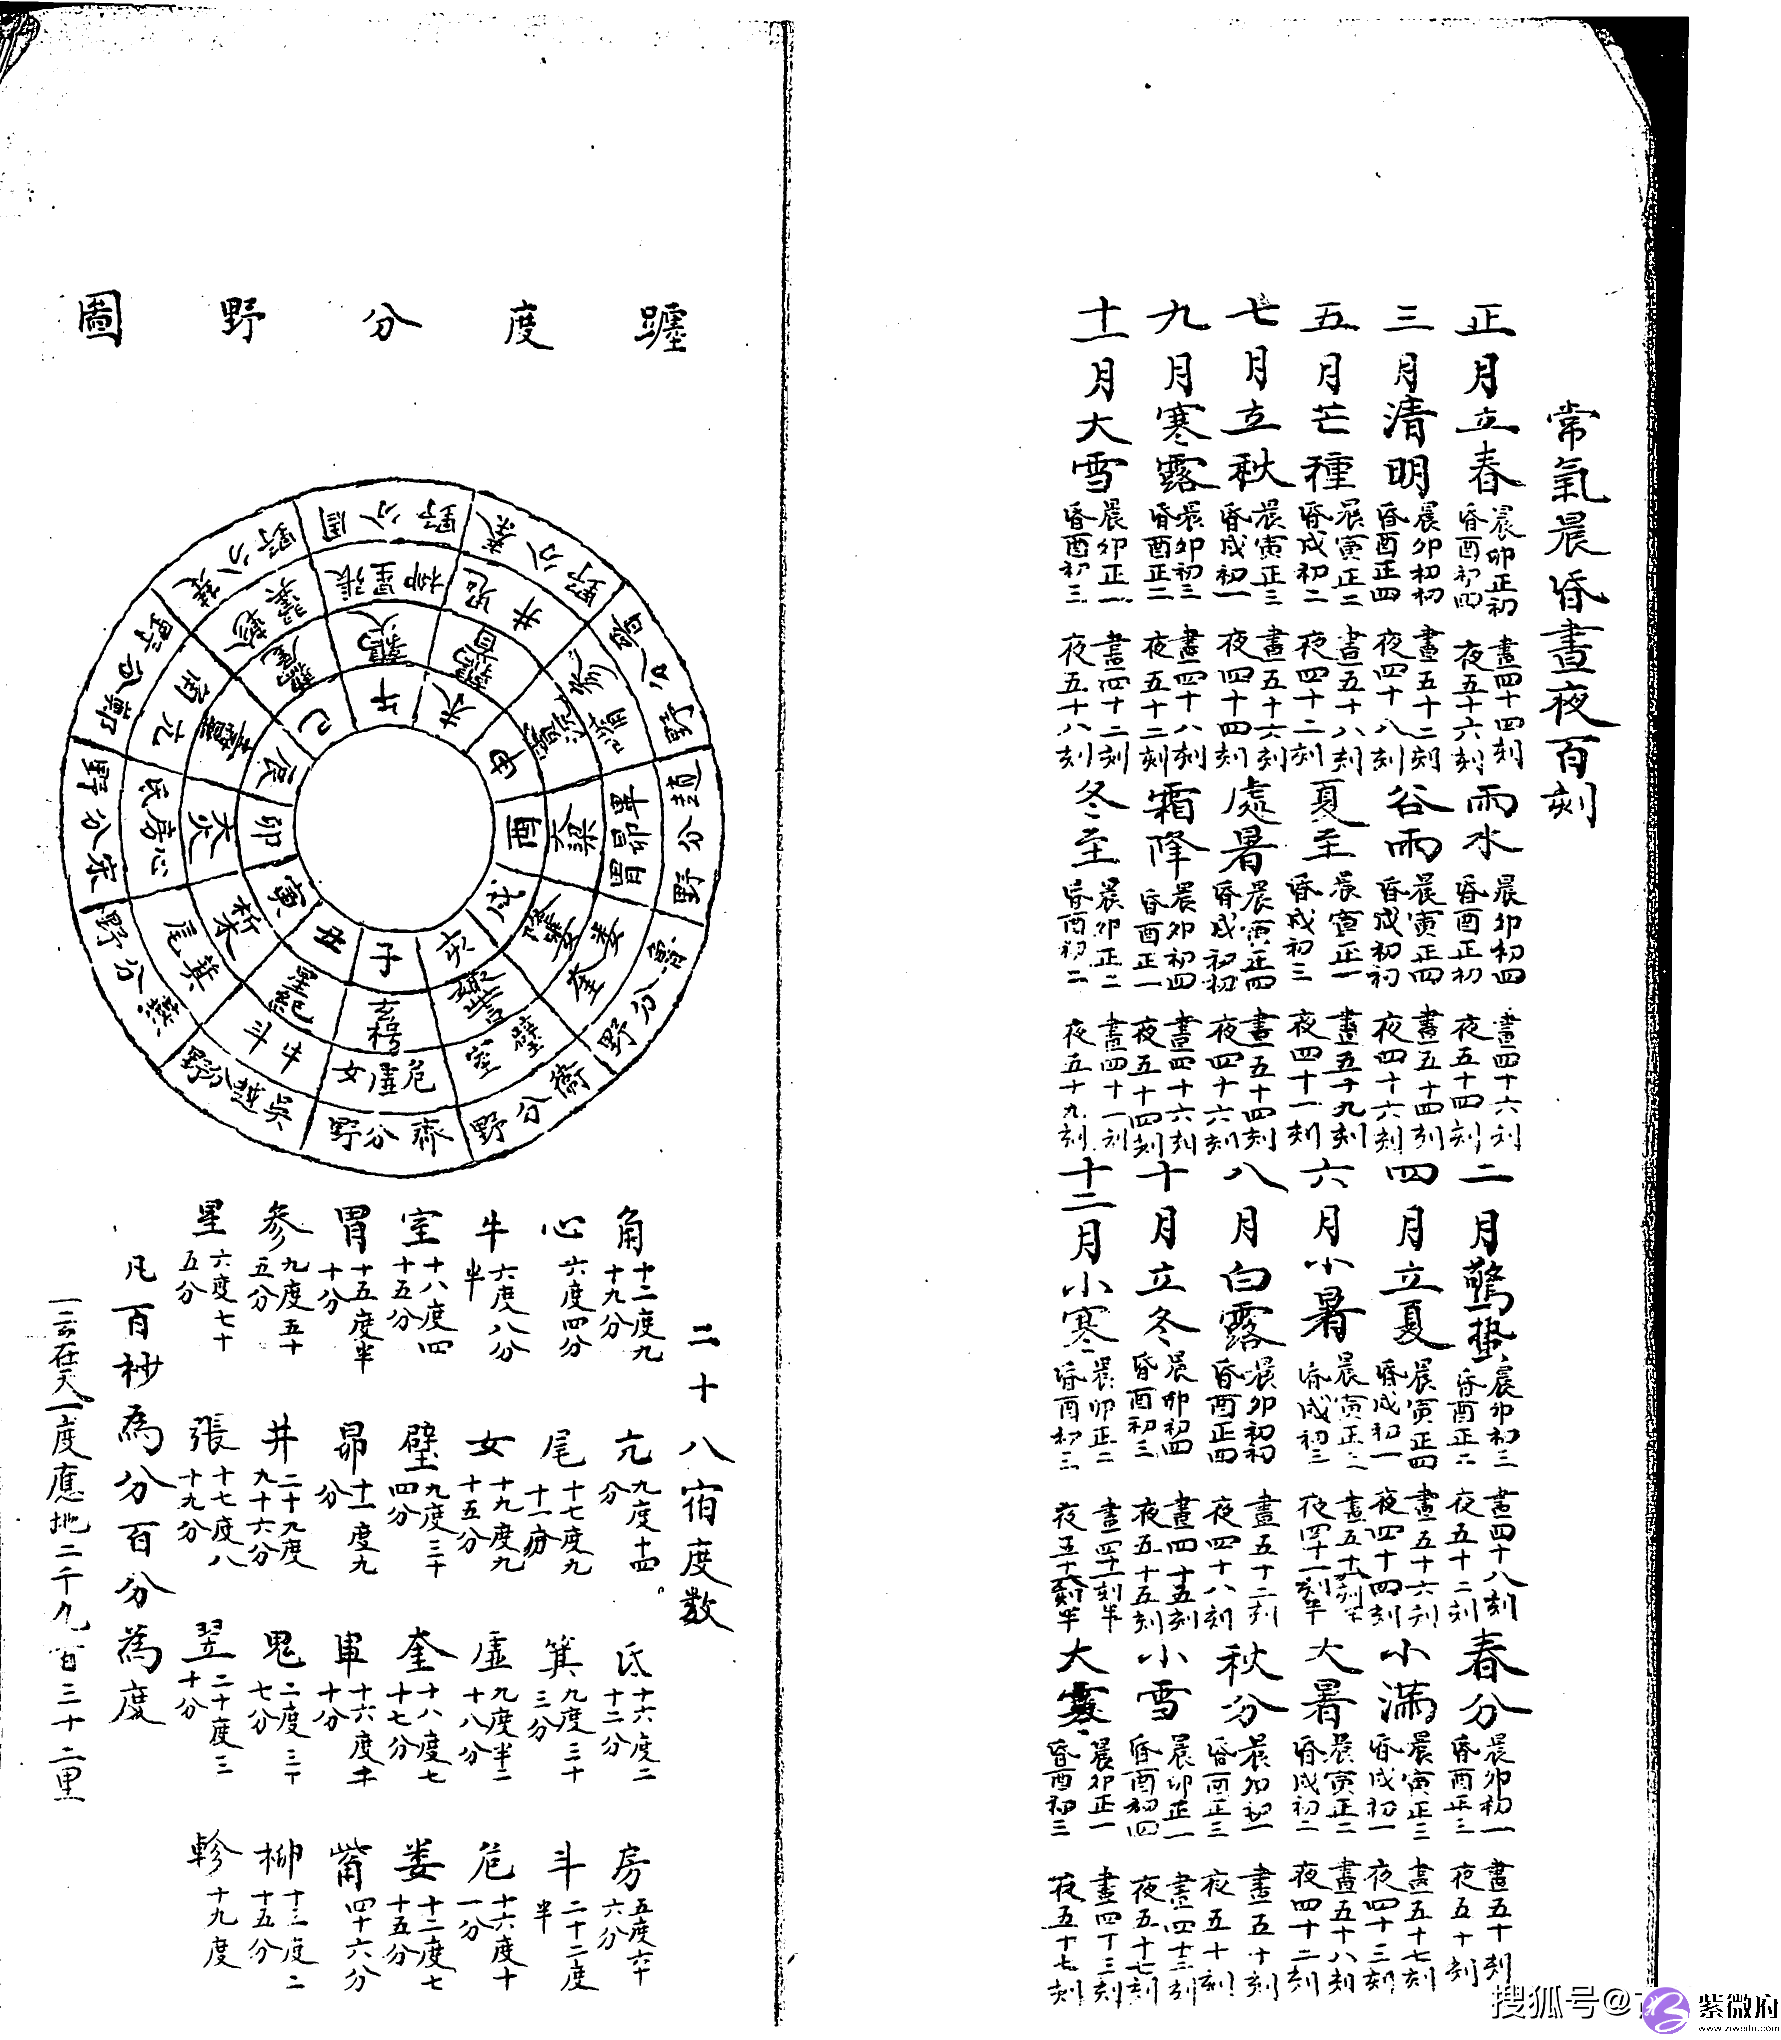 常氣晨昏晝夜百刻
正月立春 晨卯正初 昏酉初四 晝四十四刻 夜五十六刻 雨水 晨卯初四 昏酉正初 晝四十六刻 夜五十四刻 二月驚蟄 晨卯初三 昏酉正二 晝四十八刻 夜五十二刻 春分 晨卯初一 昏酉正三 晝五十刻 夜五十刻
三月清明 晨卯初初 昏酉正四 晝五十二刻 夜四十八刻 谷雨 晨寅正四 昏戌初初 晝五十四刻 夜四十六刻 四月立夏 晨寅正四 昏戌初一 晝五十六刻 夜四十四刻 小滿 晨寅正三 昏戌初一 晝五十七刻 夜四十三刻
五月芒種 晨寅正二 昏戌初二 晝五十八刻 夜四十二刻 夏至 晨寅正一 昏戌初三 晝五十九刻 夜四十一刻 六月小暑 晨寅正二 昏戌初三 夜四十一刻半 大暑 晨寅正二 昏戌初二 晝五十八刻 夜四十二刻
七月立秋 晨寅正三 昏戌初一 晝五十六刻 夜四十四刻 處暑 晨寅正四 昏戌初初 晝五十四刻 夜四十六刻 八月白露 晨卯初初 昏酉正四 晝五十二刻 夜四十八刻 秋分 晨卯初一 昏酉正三 晝五十刻 夜五十刻
九月寒露 晨卯初三 昏酉正二 晝四十八刻 夜五十二刻 霜降 晨卯初四 昏酉正一 晝四十六刻 夜五十四刻 十月立冬 晨卯初四 昏酉初三 晝四十五刻 夜五十五刻 小雪 晨卯正一 昏酉初四 晝四十三刻 夜五十七刻
十一月大雪 晨卯正一 昏酉初三 晝四十二刻 夜五十八刻 冬至 晨卯正二 昏酉初二 晝四十一刻 夜五十九刻 十二月小寒 晨卯正二 昏酉初二 晝四十一刻半 夜五十八刻半 大寒 晨卯正一 昏酉初三 晝四十三刻 夜五十七刻
躔度分野圖
午 鶉火 柳星張 周分野
未 鶉首 井鬼 秦分野
申 實沈 觜參 晉分野
酉 大梁 胃昴畢 趙分野
戌 降婁 奎婁 魯分野
亥 娵訾 室壁 衛分野
子 玄枵 女虛危 齊分野
丑 星紀 斗牛 吳越分野
寅 析木 尾箕 燕分野
卯 大火 氐房心 宋分野
辰 壽星 角亢 鄭分野
巳 鶉尾 翼軫 楚分野
二十八宿度数
角 十二度九十九分 亢 九度十四分 氐 十六度二十二分 房 五度六十六分
心 六度四分 尾 十七度九十一分 箕 九度三十三分 斗 二十二度半
牛 六度八分半 女 十九度九十五分 虛 九度半二十八分 危 十六度十一分
室 十八度四十五分 壁 九度三十四分 奎 十八度七十七分 婁 十二度七十五分
胃 十五度半十分 昴 十一度九分 畢 十六度半十分 觜 四十六分
參 九度五十五分 井 二十九度九十六分 鬼 二度三十七分 柳 十三度二十五分
星 六度七十五分 張 十七度八十九分 翌 二十度三十分 軫 十九度
凡百秒為分百分為度
一云在天一度應地二千九百三十二里
搜狐号@
紫微府
www.ziweifu.com